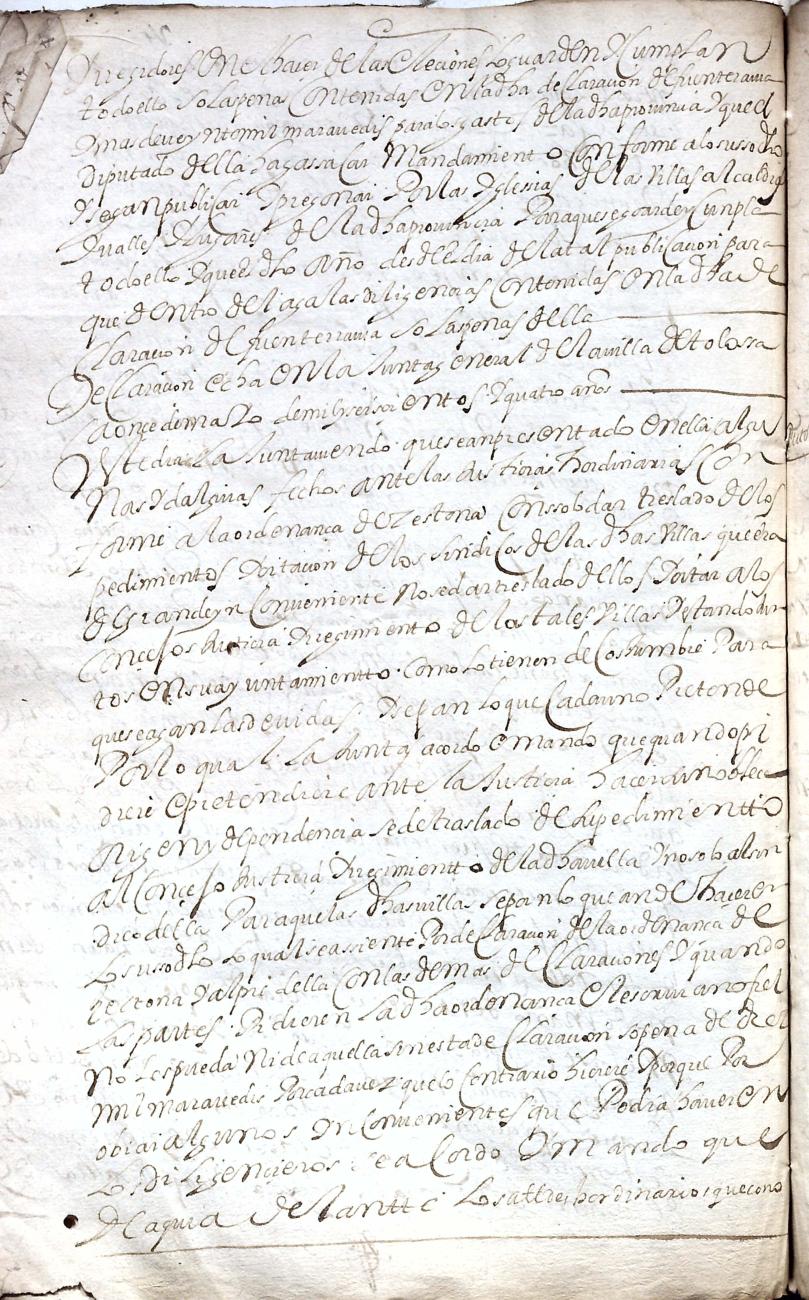 Y regidores en el haver de las eleciones lo guarden y cumplan
todo ello so las penas contenidas en la dha declaracion de fuenterrauia
y mas de veynte mil maravedis para los gastos de la dha provincia y que el
diputado della haga sacar mandamiento conforme a lo susso dho
y se agan publicar y pregonar por las yglesias de las villas alcaldias
y valles y lugares de la dha provincia para que se goarde y cumpla
todo ello y que el dho año desde el dia de la tal publicacion para
que dentro del agalas diligencias contenidas en la dha de
claracion de fuenterrauia so las penas della
Declaracion echa en la Junta general de la villa de tolosa
a onze de maio de mil y seiscientos y quatro años
Este dia la Junta viendo que se an presentado en ella algu
nas ydalguias fechos ante las Justicias hordinarias con
forme a la ordenanca de zestona con ssolo dar treslado de los
pedimientos y citacion de los sindicos de las dhas villas que era
de grande ynconveniente no se dar treslado dellos y citar a los
concejos Justicia y regimiento de las tales villas y stando jun
tos en su ayuntamiento como lo tienen de costumbre para
que se agan las devidas y sepan lo que cada uno pretende
Por lo qual la Junta acordo e mando que quando pi
diere e pretendiere ante la Justicia hacer su nobleca
origen y dependencia se de traslado de su pedimientto
al Concejo Justicia y regimientto de la dha villa y no solo al sin
dico della para que las dhas villas sepan lo que an de haver en
lo susso dho lo qual se assiente por declaracion de la ordenanca de
cestona y al pie della con las demas declaraciones y quando
las partes pidieren la dha ordenanca el escrivano fiel
no les pueda ni de aquella sin esta declaracion so pena de diez
mil maravedis por cada vez que lo contrario hiciere y porque por
obiar algunos ynconvenientes que podria haver en
los diligencieros se acordo y mando que
de aqui a delantte los alldes hordinarios que cono